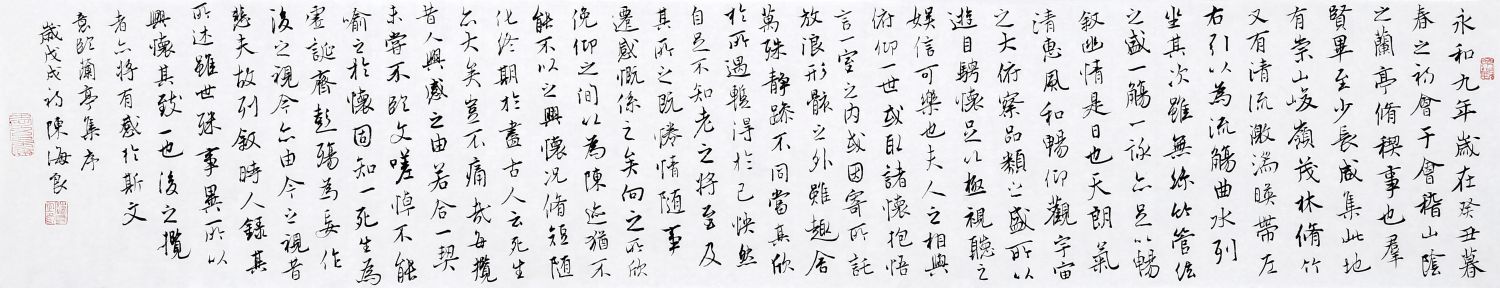 永和九年歲在癸丑暮
春之初會于會稽山陰
之蘭亭脩稧事也羣
賢畢至少長咸集此地
有崇山峻嶺茂林脩竹
又有清流激湍暎帶左
右引以為流觴曲水列
坐其次雖無絲竹管弦
之盛一觴一詠亦足以暢
叙幽情是日也天朗氣
清惠風和暢仰觀宇宙
之大俯察品類之盛所以
遊目騁懷足以極視聽之
娛信可樂也夫人之相與
俯仰一世或取諸懷抱悟
言一室之內或因寄所託
放浪形骸之外雖趣舍
萬殊靜躁不同當其欣
於所遇蹔得於己怏然
自足不知老之將至及
其所之既惓情隨事
遷感慨係之矣向之所欣
俛仰之間以為陳迹猶不
能不以之興懷況脩短隨
化終期於盡古人云死生
亦大矣豈不痛哉每攬
昔人興感之由若合一契
未嘗不臨文嗟悼不能
喻之於懷固知一死生為
虛誕齊彭殤為妄作
後之視今亦由今之視昔
悲夫故列叙時人錄其
所述雖世殊事異所以
興懷其致一也後之攬
者亦將有感於斯文
意臨蘭亭集序
歲戊戌初陳海良